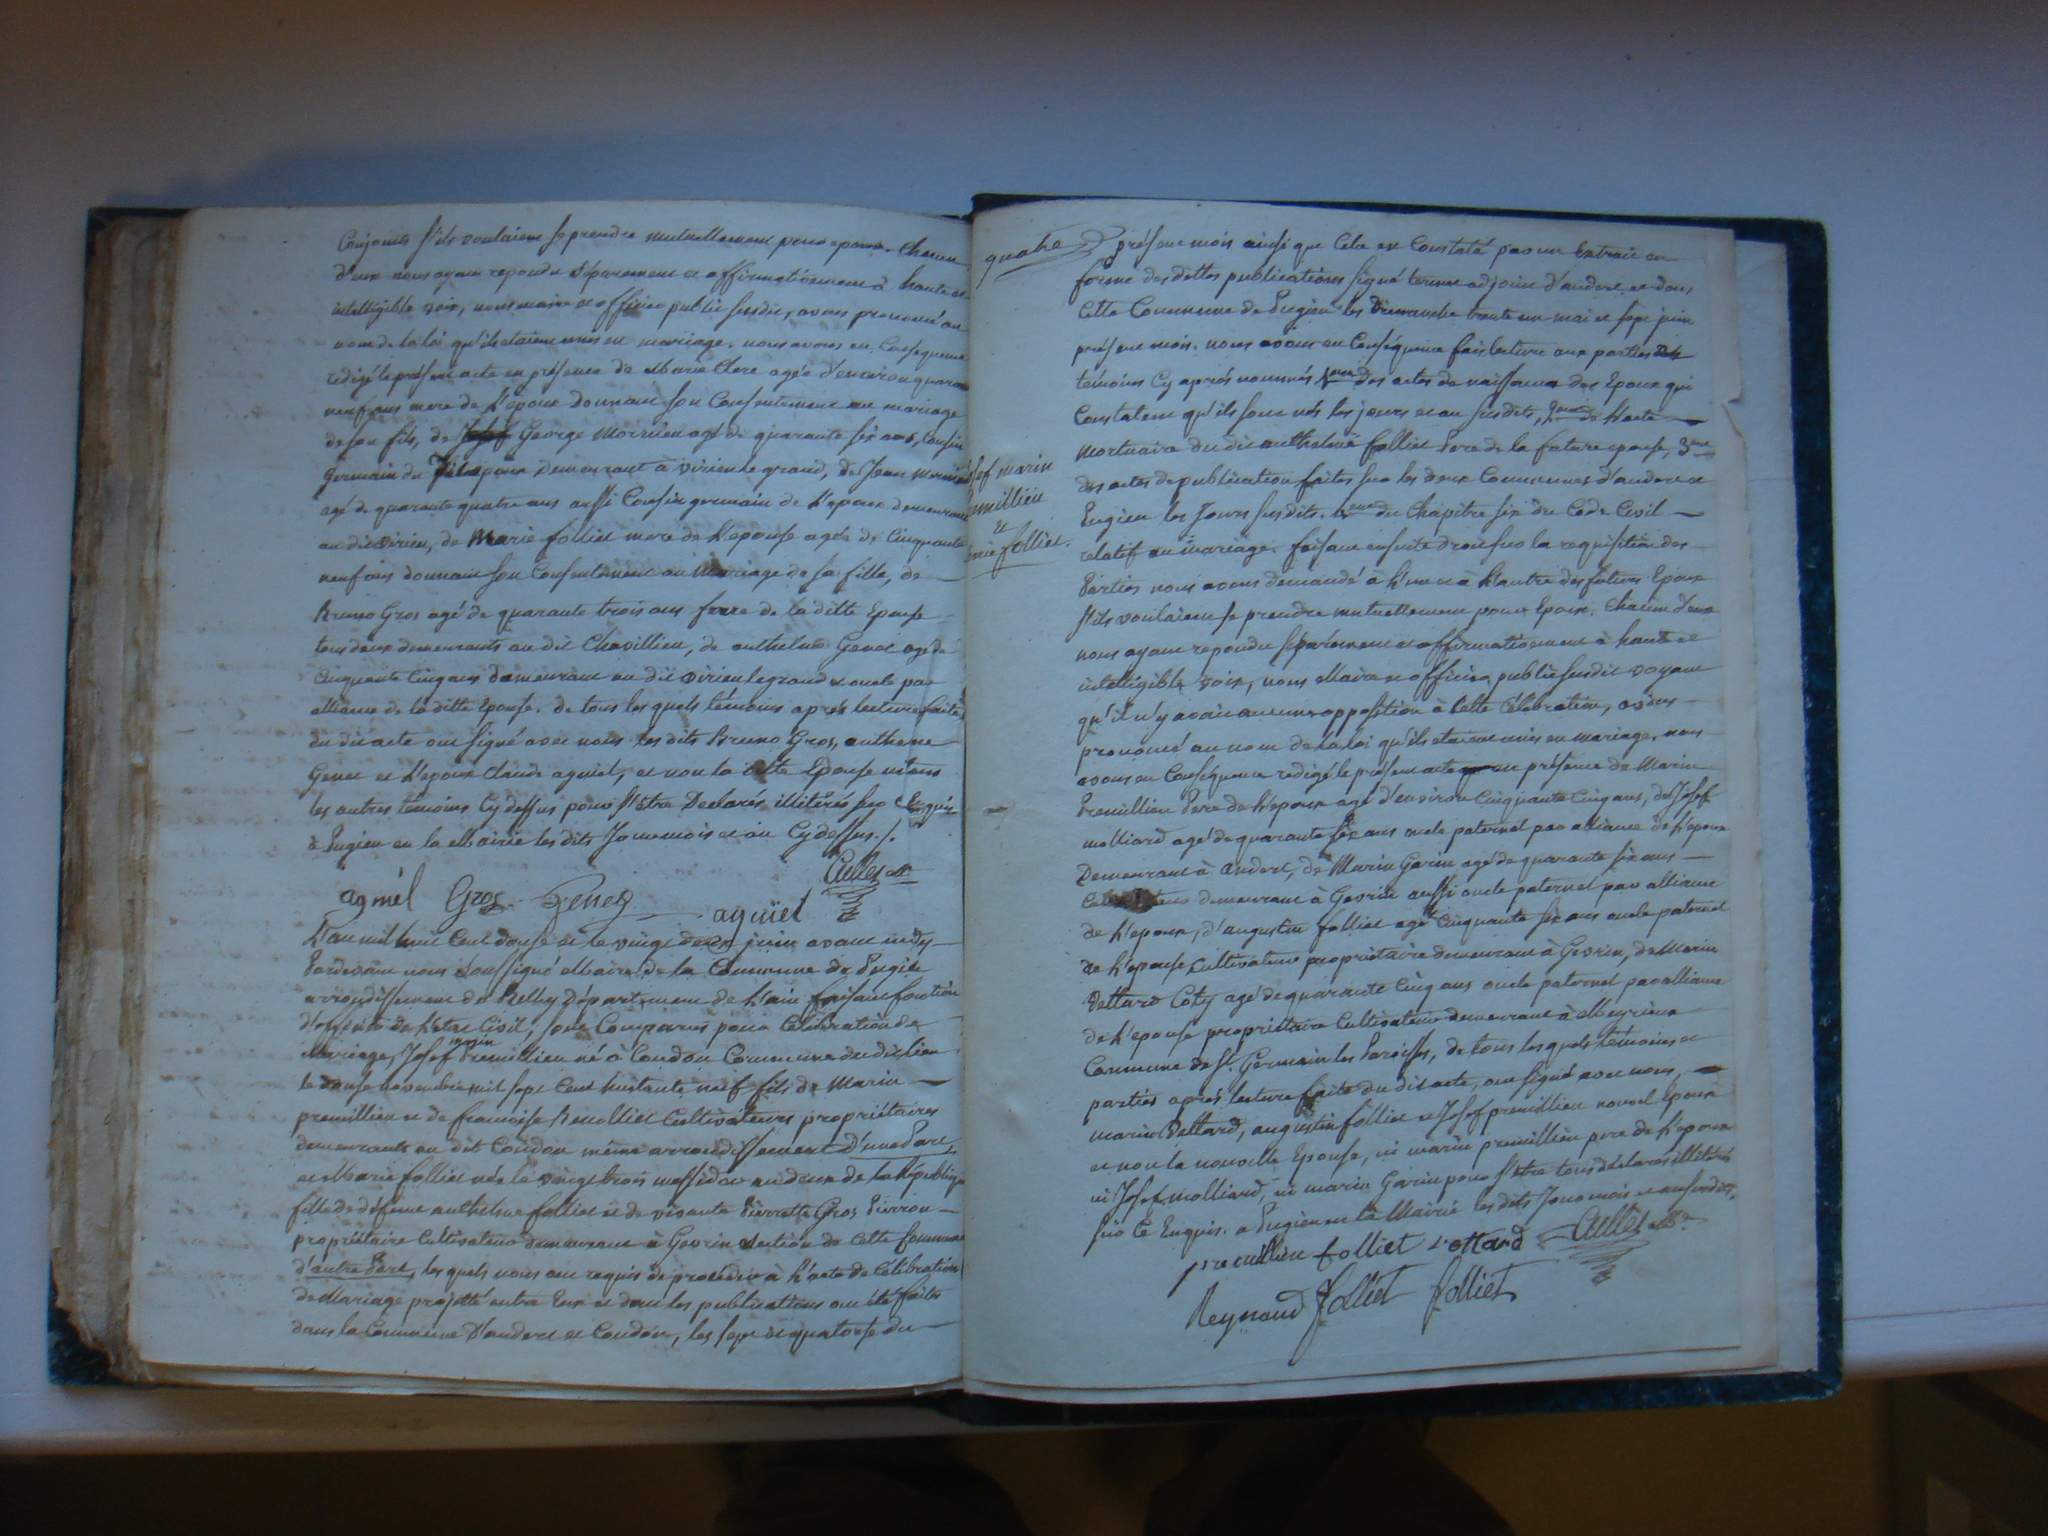 Conjoints s'ils voulaient se prendre mutuellement pour epoux. Chacun
d'eux nous ayant repondu séparement et affirmativement à haute et
intelligible voix, nous maire et officier public susdit, avons prononcé au
nom de la loi qu'ils etaient unis en mariage. nous avons en Consequence
redigé le présent acte en présence de Marie Clere agée d'environ quarante
neuf ans mere de l'epoux donnant son Consentement au mariage
de son fils, de George agé de quarante six ans, Cousin
germain du epoux demeurant à Virieu le grand, de Jean
agé de quarante quatre ans aussi Cousin germain de l'epoux demeurant
au dit Virieu, de Marie folliet mere de l'epouse agée de Cinquante
neuf ans donnant son Consentement au Mariage de sa fille, de
Bruno Gros agé de quarante trois ans frere de la ditte Epouse
tous deux demeurants au dit Chavillieu, de anthelme Genet agé de
Cinquante Cinq ans demeurant au dit Virieu le grand oncle par
alliance de la ditte Epouse. de tous les quels témoins après lecture faite
du dit acte ont signé avec nous les dits Bruno Gros, anthelme
Genet et l'epoux Claude agniel, et non la ditte Epouse ni tous
les autres témoins Cy dessus pour s'être Declarés illitérés sur Ce Enquis
à Pugieu en la Mairie les dits Jour mois et an Cy dessus./.
agniel Gros Genet agniel
L'an mil huit Cent douse et le vingt deux juin avant midy
Pardevant nous soussigné Maire de la Commune de Pugieu
arrondissement de Belley Département de l'ain faisant fonction
d'officier de l'etat Civil, sont Comparus pour Célébration de
Mariage, Josef marin Premillieu né à Condon Commune du dit lieu
le douse novembre mil sept Cent huitante neuf fils de Marin
premillieu et de francoise Cultivateurs propriétaires
demeurants au dit Condon même arrondissement D'une Part,
et Marie folliet née le vingt trois messidor an deux de la République
fille de défunt anthelme folliet et de vivante Pierrette Gros Pierron
propriétaire Cultivateur demeurant à Gevrin Section de cette Commune
d'autre Part, les quels nous ont requis de procéder à l'acte de Célébration
de Mariage projetté entre Eux et dont les publications ont été faites
dans la Commune D'andert et Condon, les sept et quatorse du
quatre
présent mois ainsi que Cela est Constaté par un Extrait en
forme des dittes publications signé adjoint d'andert et dans
Cette Commune de Pugieu les Dimanche trente un mai et sept juin
présent mois. nous avons en Conséquence fait lecture aux parties
temoins Cy après nommés 1ment des actes de naissance des Epoux qui
Constatent qu'ils sont nés les jours et an susdits, 2ment de l'acte
Mortuaire du dit anthelme folliet Pere de la future epouse, 3ment
des actes de publication faites sur les deux Communes d'andert et
Pugieu les Jours susdits. 4ment du Chapitre six du Code Civil
relatif au mariage. faisant ensuite droit sur la requisition des
Parties nous avons demandé à l'un et à l'autre des futurs Epoux
s'ils voulaient se prendre mutuellement pour Epoux. Chacun d'eux
nous ayant repondu séparément et affirmativement à haute et
intelligible voix, nous Maire et officier public susdit voyant
qu'il n'y avait aucune opposition à Cette Célébration, avons
prononcé au nom de la loi qu'ils etaient unis en mariage, nous
avons en Conséquence redigé le présent acte en présence de Marin
Premillieu Pere de l'epoux agé d'environ Cinquante Cinq ans, de Josef
molliard agé de quarante six ans oncle paternel par alliance de l'epoux
Demeurant à andert, de Marin Garin agé de quarante six ans
demeurant à Gevrin aussi oncle paternel par alliance
de l'epoux, d'augustin folliet agé Cinquante six ans oncle paternel
de l'epouse Cultivateur propriétaire demeurant à Gevrin, de Marin
Vettard agé de quarante Cinq ans oncle paternel par alliance
de l'epouse propriétaire Cultivateur demeurant à Meyrieux
Commune de St. Germain les Paroisses, de tous les quels témoins et
parties après lecture faite du dit acte, ont signé avec nous,
marin Vettard, augustin folliet et Josef premillieu nouvel Epoux
et non la nouvelle Epouse, ni marin premillieu pere de l'epoux
ni Josef molliard, ni marin Garin pour s'être tous déclarés illitérés
sur Ce Enquis. a Pugieu en la Mairie les dits Jour mois et an susdits.
premillieu folliet Vettard
Reynaud folliet folliet
Josef marin
Premillieu
et
Marie folliet.